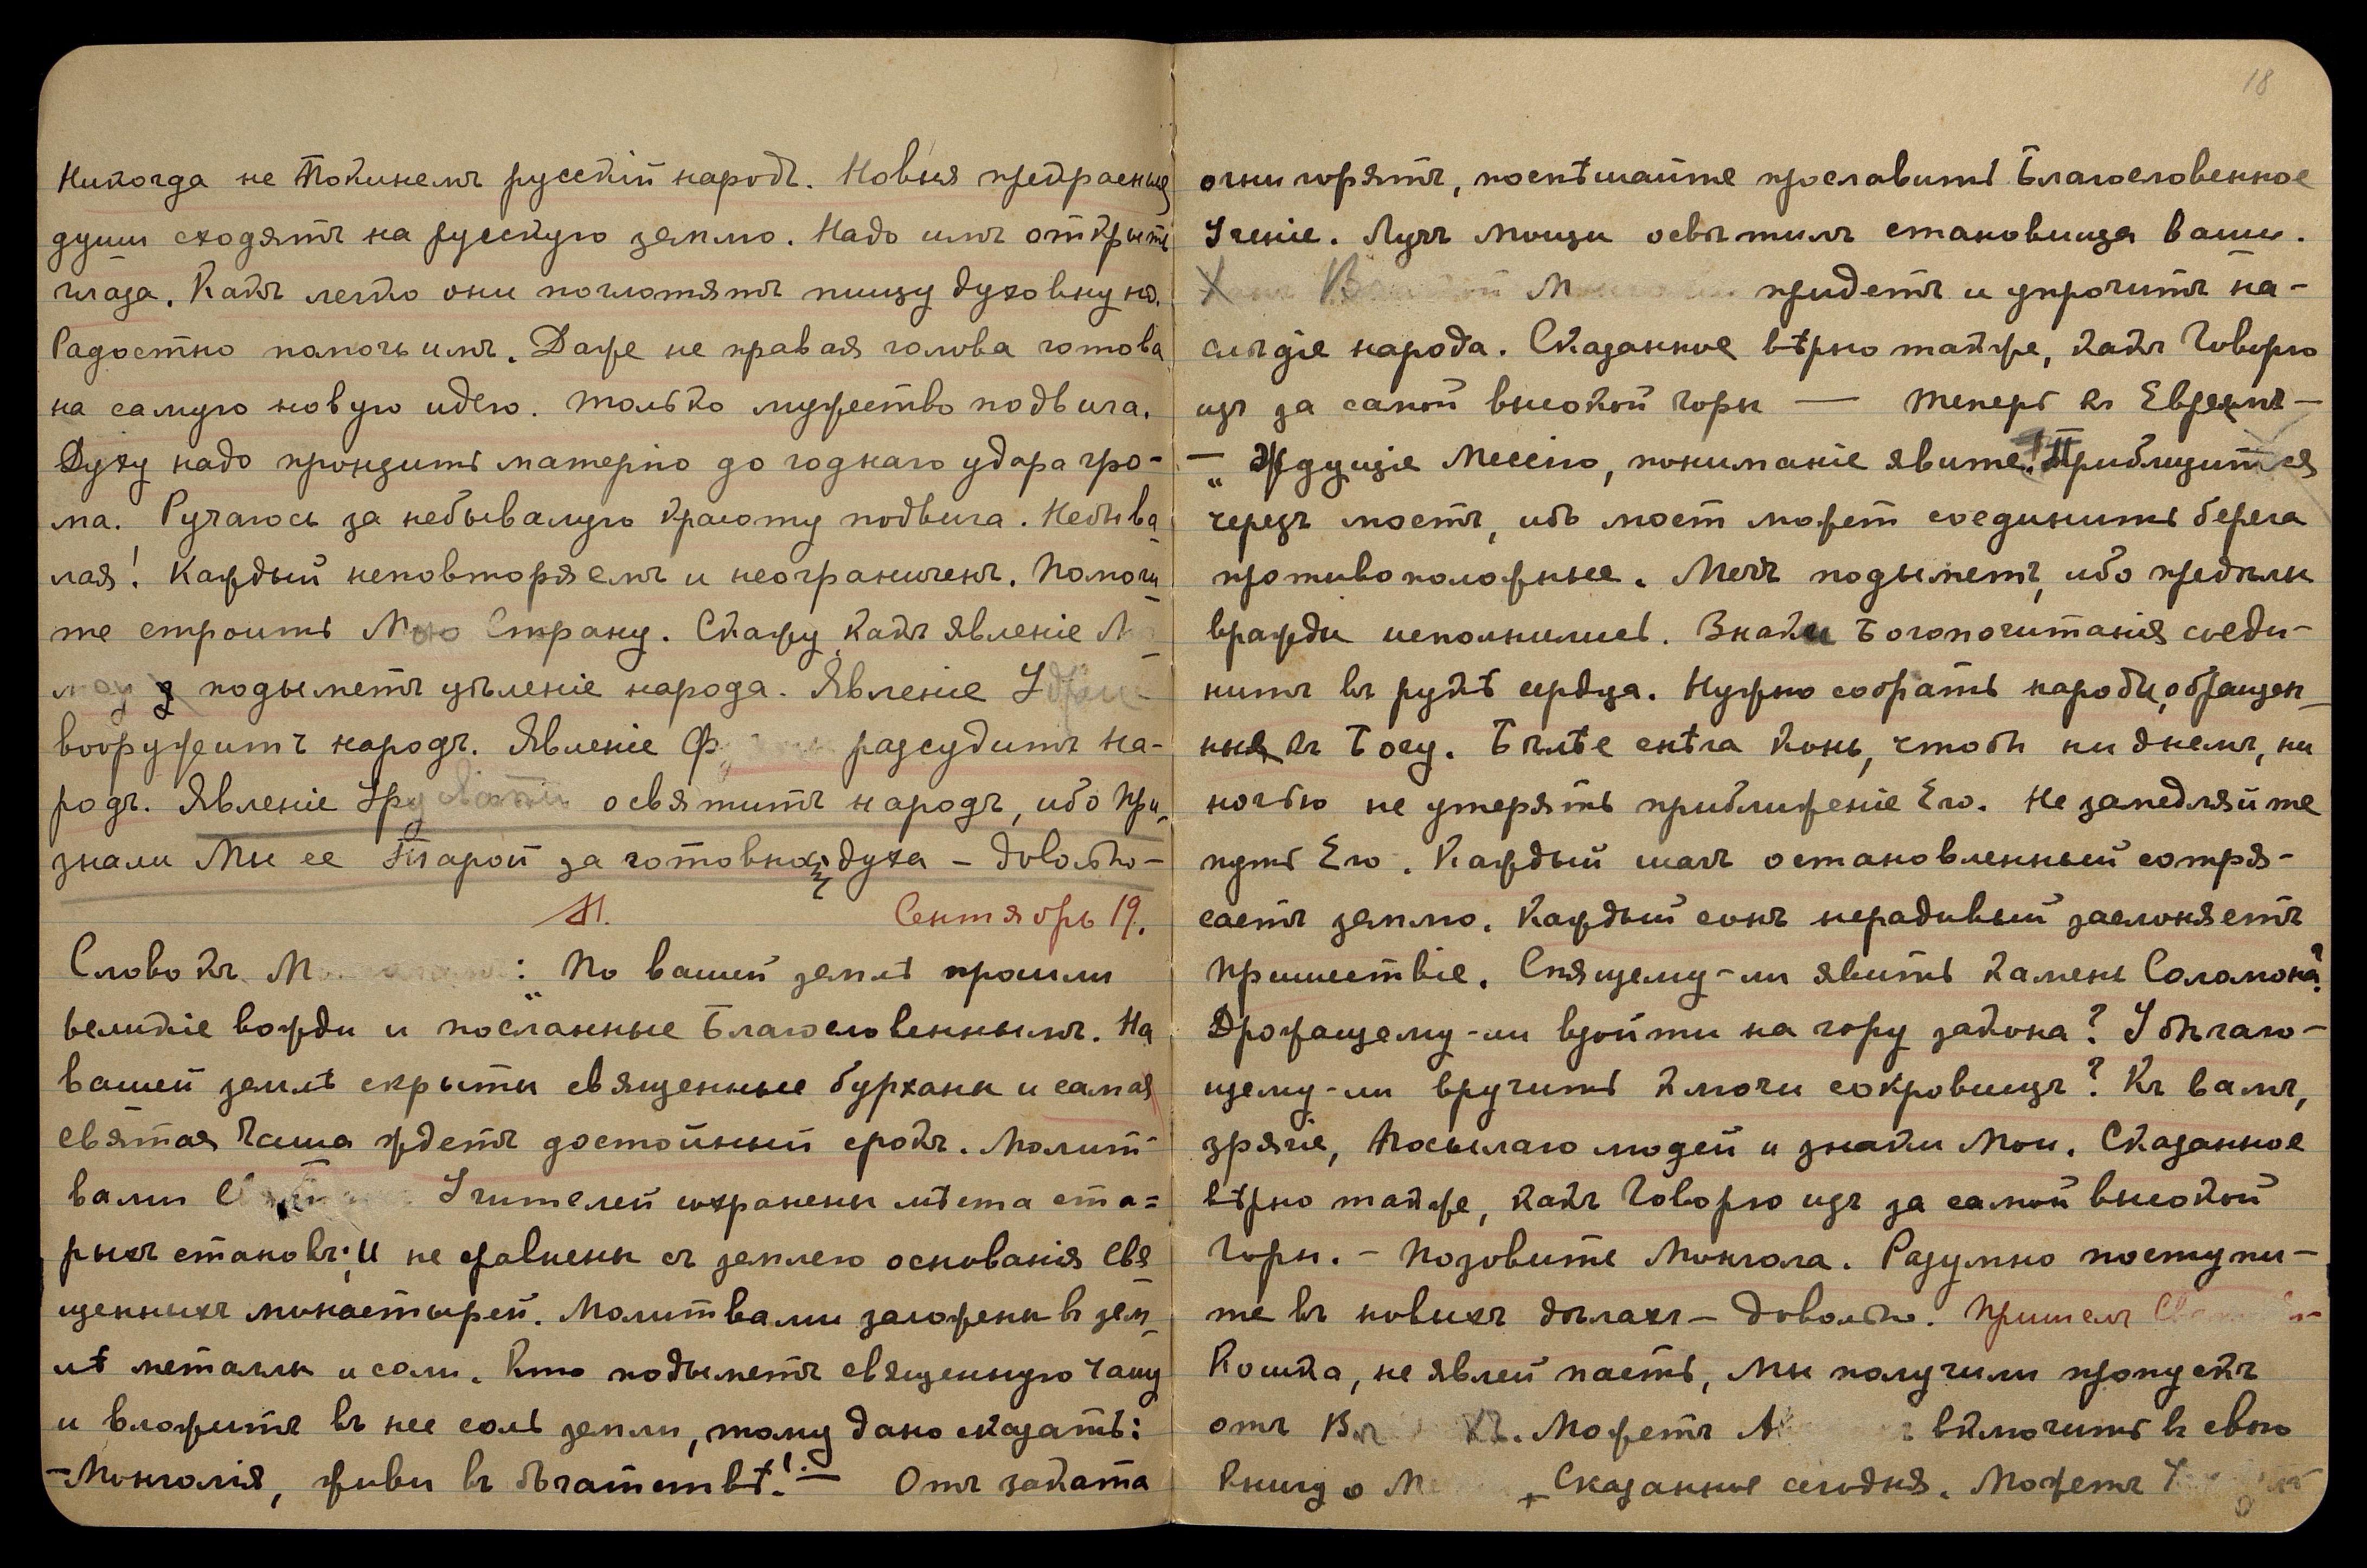 Никогда не Покинемъ русскій народъ. Новыя прекрасныя
души сходятъ на русскую землю. Надо имъ открыть
глаза. Какъ легко они поглотятъ пищу духовную.
Радостно помочь имъ. Даже не правая голова готова
на самую новую идею. Только мужество подвига.
Духу надо пронзить матерію до годнаго удара гро-
ма. Ручаюсь за небывалую красоту подвига. Небыва-
лая! Каждый неповторяемъ и неограниченъ. Помоги-
те строить Мою Страну. Скажу, какъ явленіе
подыметъ цѣленіе народа. Явленіе
вооружитъ народъ. Явленіе разсудитъ на-
родъ. Явленіе Урусвати освятитъ народъ, ибо При-
знали Мы ее Тарой за готовность духа – довольно –
Сентябрь 19.
Слово къ : „По вашей землѣ прошли
великіе вожди и посланные Благословеннымъ. На
вашей землѣ скрыты священные бурханы и самая
святая Чаша ждетъ достойный срокъ. Молит-
вами Учителей сохранены мѣста ста=
рыхъ становъ; И не сравнены съ землею основанія свя-
щенныхъ монастырей. Молитвами заложены в зем-
лѣ металлы и соли. Кто подыметъ священную Чашу
и вложитъ въ нее соль земли, тому дано сказать:
– Монголія, живи въ богатствѣ! – Отъ заката
18
огни горятъ, поспѣшайте прославить Благословенное
Ученіе. Лучъ мощи освѣтилъ становища ваши.
придетъ и упрочитъ на-
слѣдіе народа. Сказанное вѣрно также, какъ Говорю
изъ за самой высокой Горы — Теперь къ Евреямъ –
– „Ждущіе Мессію, пониманіе явите! Приблизится
черезъ мостъ, ибо мост может соединить берега
противоположные. Мечъ подыметъ, ибо предѣлы
вражды исполнились. Знаки Богопочитанія соеди-
нитъ въ рукѣ сердца. Нужно собрать народы, обращен-
ныя къ Богу. Бѣлѣе снѣга конь, чтобы ни днемъ, ни
ночью не утерять приближеніе Его. Не замедляйте
путь Его. Каждый шагъ остановленный сотря-
саетъ землю. Каждый сонъ нерадивый заслоняетъ
Пришествіе. Спящему-ли явить камень Соломона?
Дрожащему-ли взойти на гору закона? Убѣгаю-
щему-ли вручить ключи сокровищъ? Къ вамъ,
зрячіе, Посылаю людей и знаки Мои. Сказанное
вѣрно также, какъ Говорю изъ за самой высокой
Горы. – Позовите Монгола. Разумно поступи-
те въ новыхъ дѣлахъ – довольно. Пришелъ
Кошка, не явлей пасть, мы получили пропускъ
отъ . Можетъ включить в свою
книгу о Сказанное сегодня. Можетъ